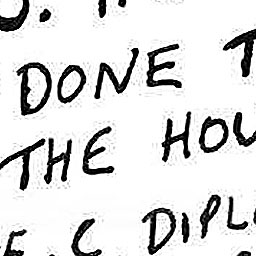 DONE T
THE HOU
E.C DIPL